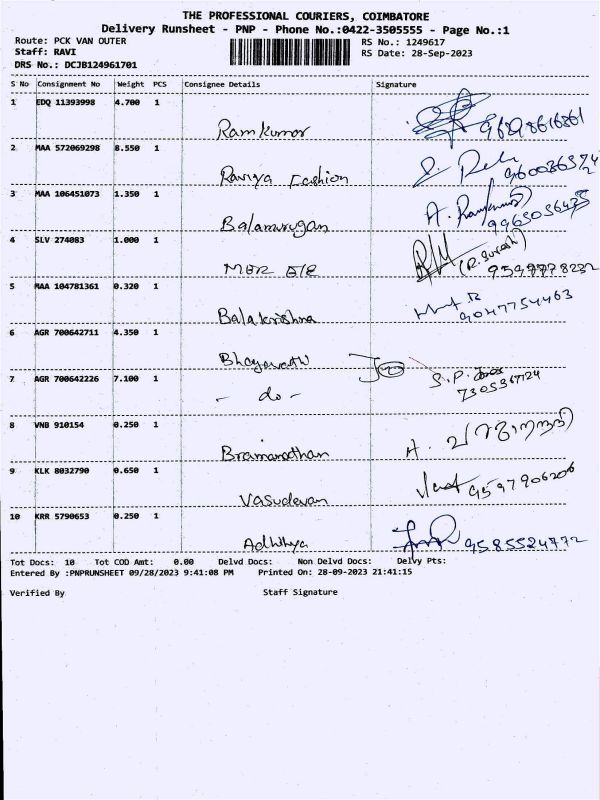 THE PROFESSIONAL COURIERS, COIMBATORE
Delivery Runsheet - PNP - Phone No.:0422-3505555 - Page No.:1
Route: PCK VAN OUTER
RS No.: 1249617
Staff: RAVI
RS Date: 28-Sep-2023
DRS No.: DCJB124961701
S No Consignment No Weight PCS Consignee Details Signature
1 EDQ 11393998 4.700 1
Ramkumar
2 MAA 572069298 8.550 1
Fashion
3 MAA 106451073 1.350 1
Balamurugan
4 SLV 274083 1.000 1
(R. Suresh)
5 MAA 104781361 0.320 1
Balakrishna 9047754463
6 AGR 700642711 4.350 1
Bhagavath
7 AGR 700642226 7.100 1
- do - S.P.
7305367724
8 VNB 910154 0.250 1
Bramanathan
9 KLK 8032790 0.650 1
Vasudevan 9597906206
10 KRR 5790653 0.250 1
Adhithya 9585524772
Tot Docs: 10 Tot COD Amt: 0.00 Delvd Docs: Non Delvd Docs: Delvy Pts:
Entered By :PNPRUNSHEET 09/28/2023 9:41:08 PM Printed On: 28-09-2023 21:41:15
Verified By Staff Signature